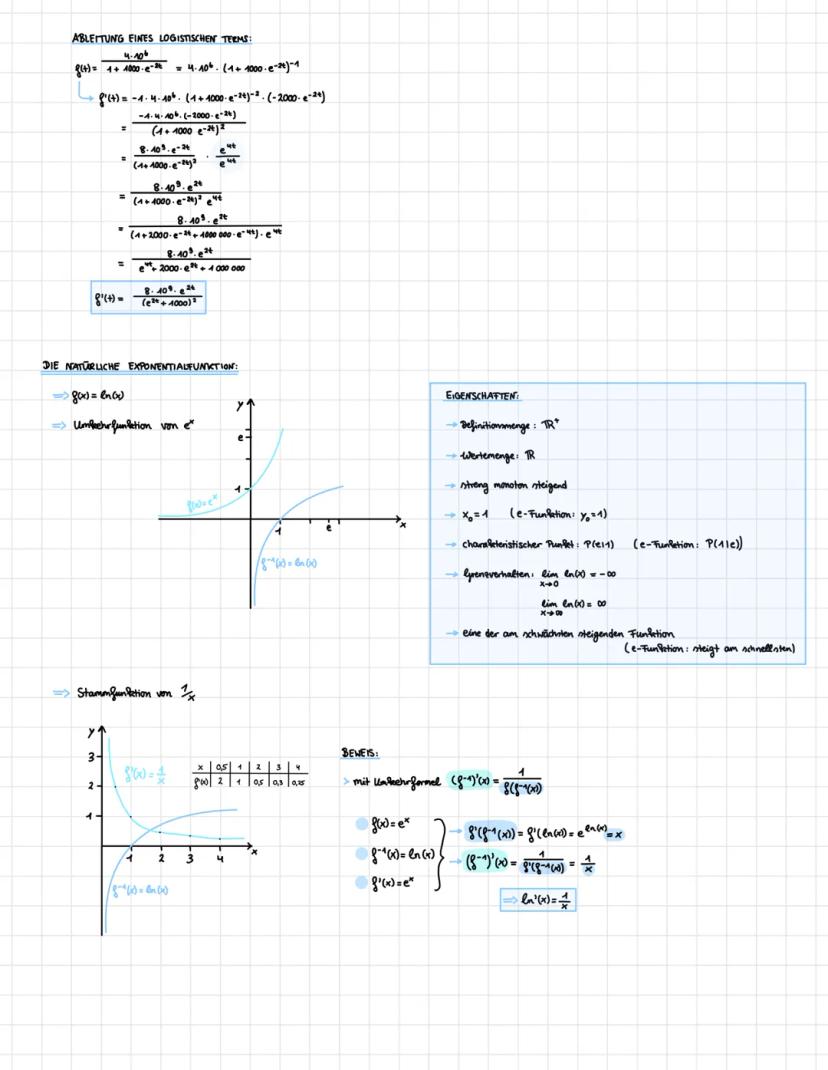 ABLEITUNG EINES LOGISTISCHEN TERMS:
f(t) = 4·10⁶ / (1 + 1000·e^(-2t)) = 4·10⁶ · (1 + 1000·e^(-2t))^(-1)
f'(t) = -1·4·10⁶ · (1 + 1000·e^(-2t))^(-2) · (-2000·e^(-2t))
= -1·4·10⁶·(-2000·e^(-2t)) / (1 + 1000 e^(-2t))²
= 8·10⁹·e^(-2t) / (1 + 1000·e^(-2t))² · e^(4t) / e^(4t)
= 8·10⁹·e^(2t) / (1 + 1000·e^(-2t))² e^(4t)
= 8·10⁹·e^(2t) / (1 + 2000·e^(-2t) + 1000 000·e^(-4t))·e^(4t)
= 8·10⁹·e^(2t) / e^(4t) + 2000·e^(2t) + 1 000 000
f'(t) = 8·10⁹·e^(2t) / (e^(2t) + 1000)²
DIE NATÜRLICHE EXPONENTIALFUNKTION:
⇒ f(x) = ln(x)
⇒ Umkehrfunktion von eˣ
y
e
1
f(x) = eˣ
1 e x
f⁻¹(x) = ln(x)
EIGENSCHAFTEN:
→ Definitionsmenge: ℝ⁺
→ Wertemenge: ℝ
→ streng monoton steigend
→ x₀ = 1 (e-Funktion: y₀ = 1)
→ charakteristischer Punkt: P(e|1) (e-Funktion: P(1|e))
→ Grenzverhalten: lim x→0 ln(x) = -∞
lim x→∞ ln(x) = ∞
→ eine der am schwächsten steigenden Funktion
(e-Funktion: steigt am schnellsten)
⇒ Stammfunktion von 1/x
y
3
2
1
f'(x) = 1/x
1 2 3 4 x
f⁻¹(x) = ln(x)
x | 0,5 | 1 | 2 | 3 | 4
f'(x) | 2 | 1 | 0,5 | 0,3 | 0,25
BEWEIS:
> mit Umkehrformel (f⁻¹)'(x) = 1 / f(f⁻¹(x))
f(x) = eˣ
f⁻¹(x) = ln(x)
f'(x) = eˣ
→ f'(f⁻¹(x)) = f'(ln(x)) = e^(ln(x)) = x
→ (f⁻¹)'(x) = 1 / f'(f⁻¹(x)) = 1/x
⇒ ln'(x) = 1/x